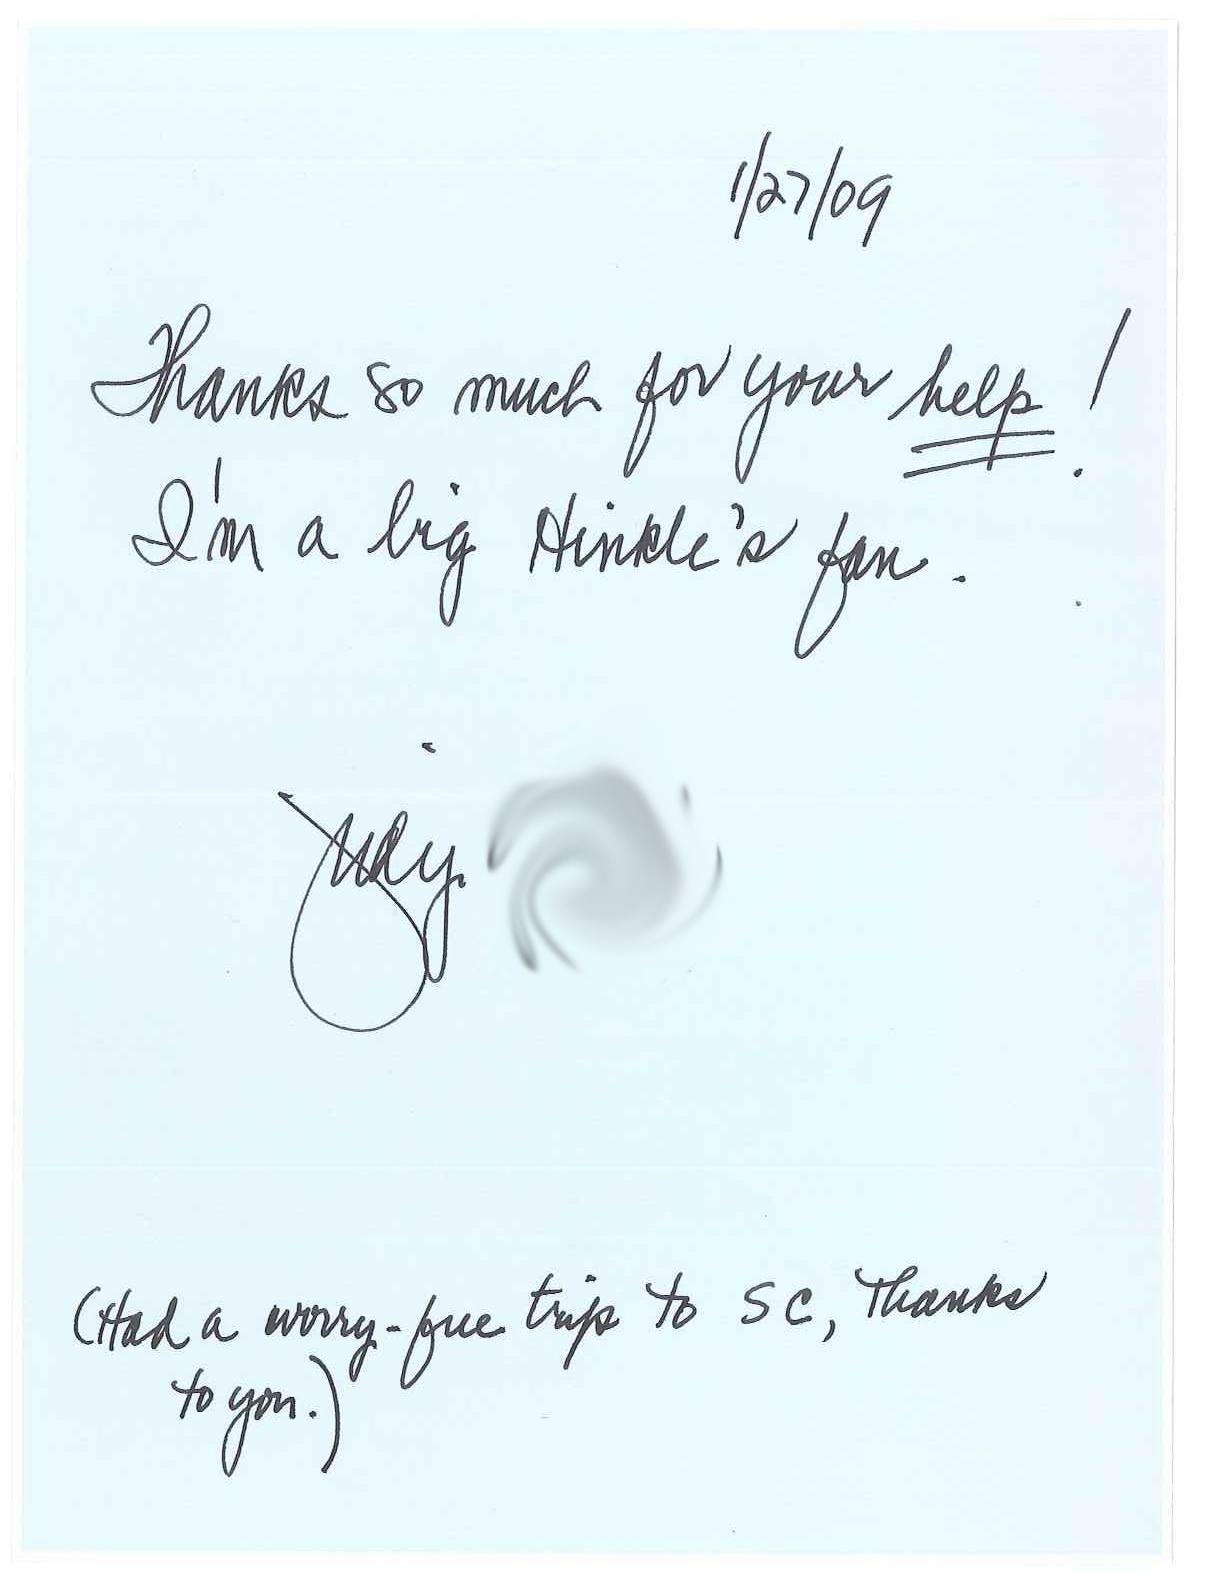 1/27/09
Thanks so much for your help!
I'm a big Hinkle's fan.
Judy
(Had a worry-free trip to SC, Thanks
to you.)